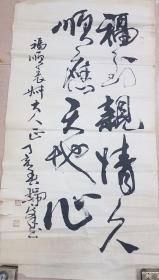 福如親情久
順應天地心
福順義叔大人正
丁亥春